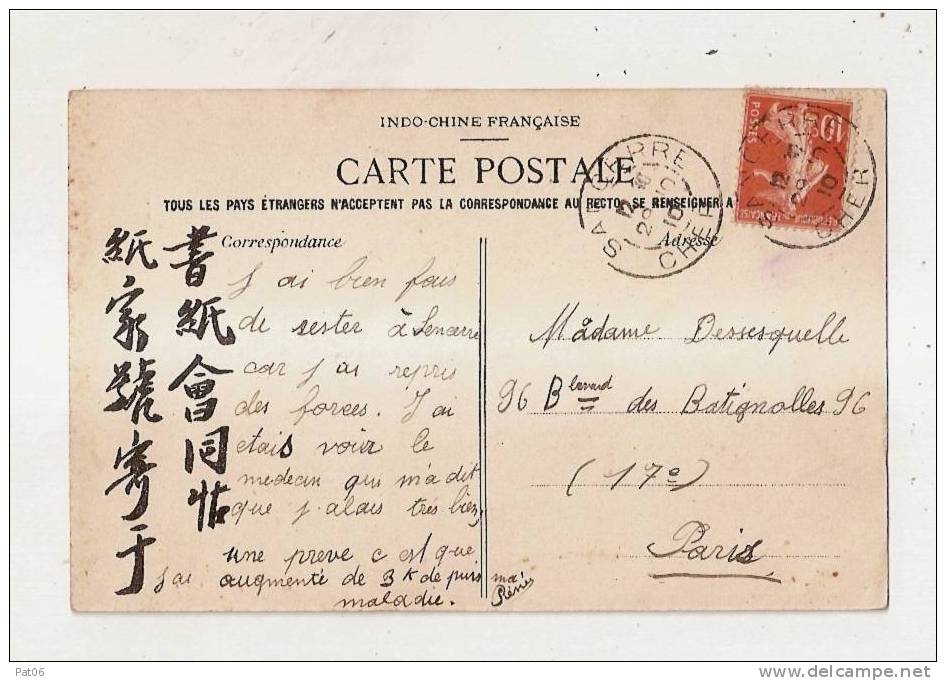 INDO-CHINE FRANÇAISE
CARTE POSTALE
TOUS LES PAYS ÉTRANGERS N'ACCEPTENT PAS LA CORRESPONDANCE AU RECTO, SE RENSEIGNER A
Correspondance
Adresse
書紙會同帖
紙家號寄于
j ai bien fais
de rester à Sencerre
car j ai repris
des forces. J ai
etais voir le
medecin qui m'a dit
que j alais très bien,
une preve c est que
j ai augmenté de 3 k de puis ma
maladie. Réné
Madame Dessesquelle
96 Blevard des Batignolles 96
(17e)
Paris
10c
POSTES
REPUBLIQUE FRANCAISE
SANCERRE
12 10
28 10
10
CHER
SANCERRE
12
28
10
CHER
Pat06
www.delcampe.net